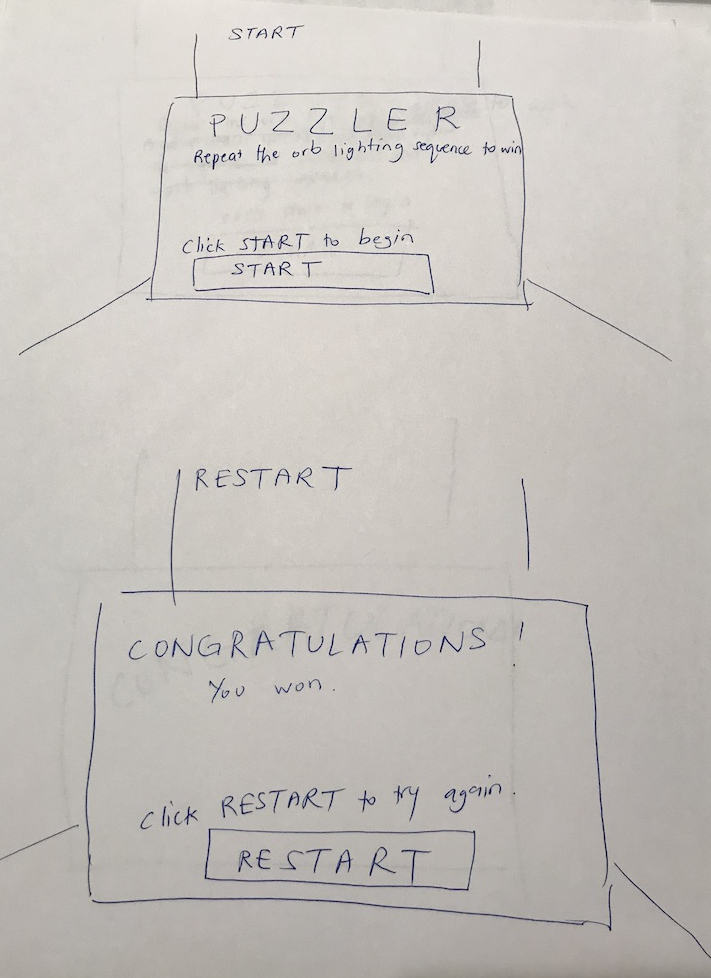 START
PUZZLER
Repeat the orb lighting sequence to win
Click START to begin
START
RESTART
CONGRATULATIONS!
You won.
Click RESTART to try again.
RESTART